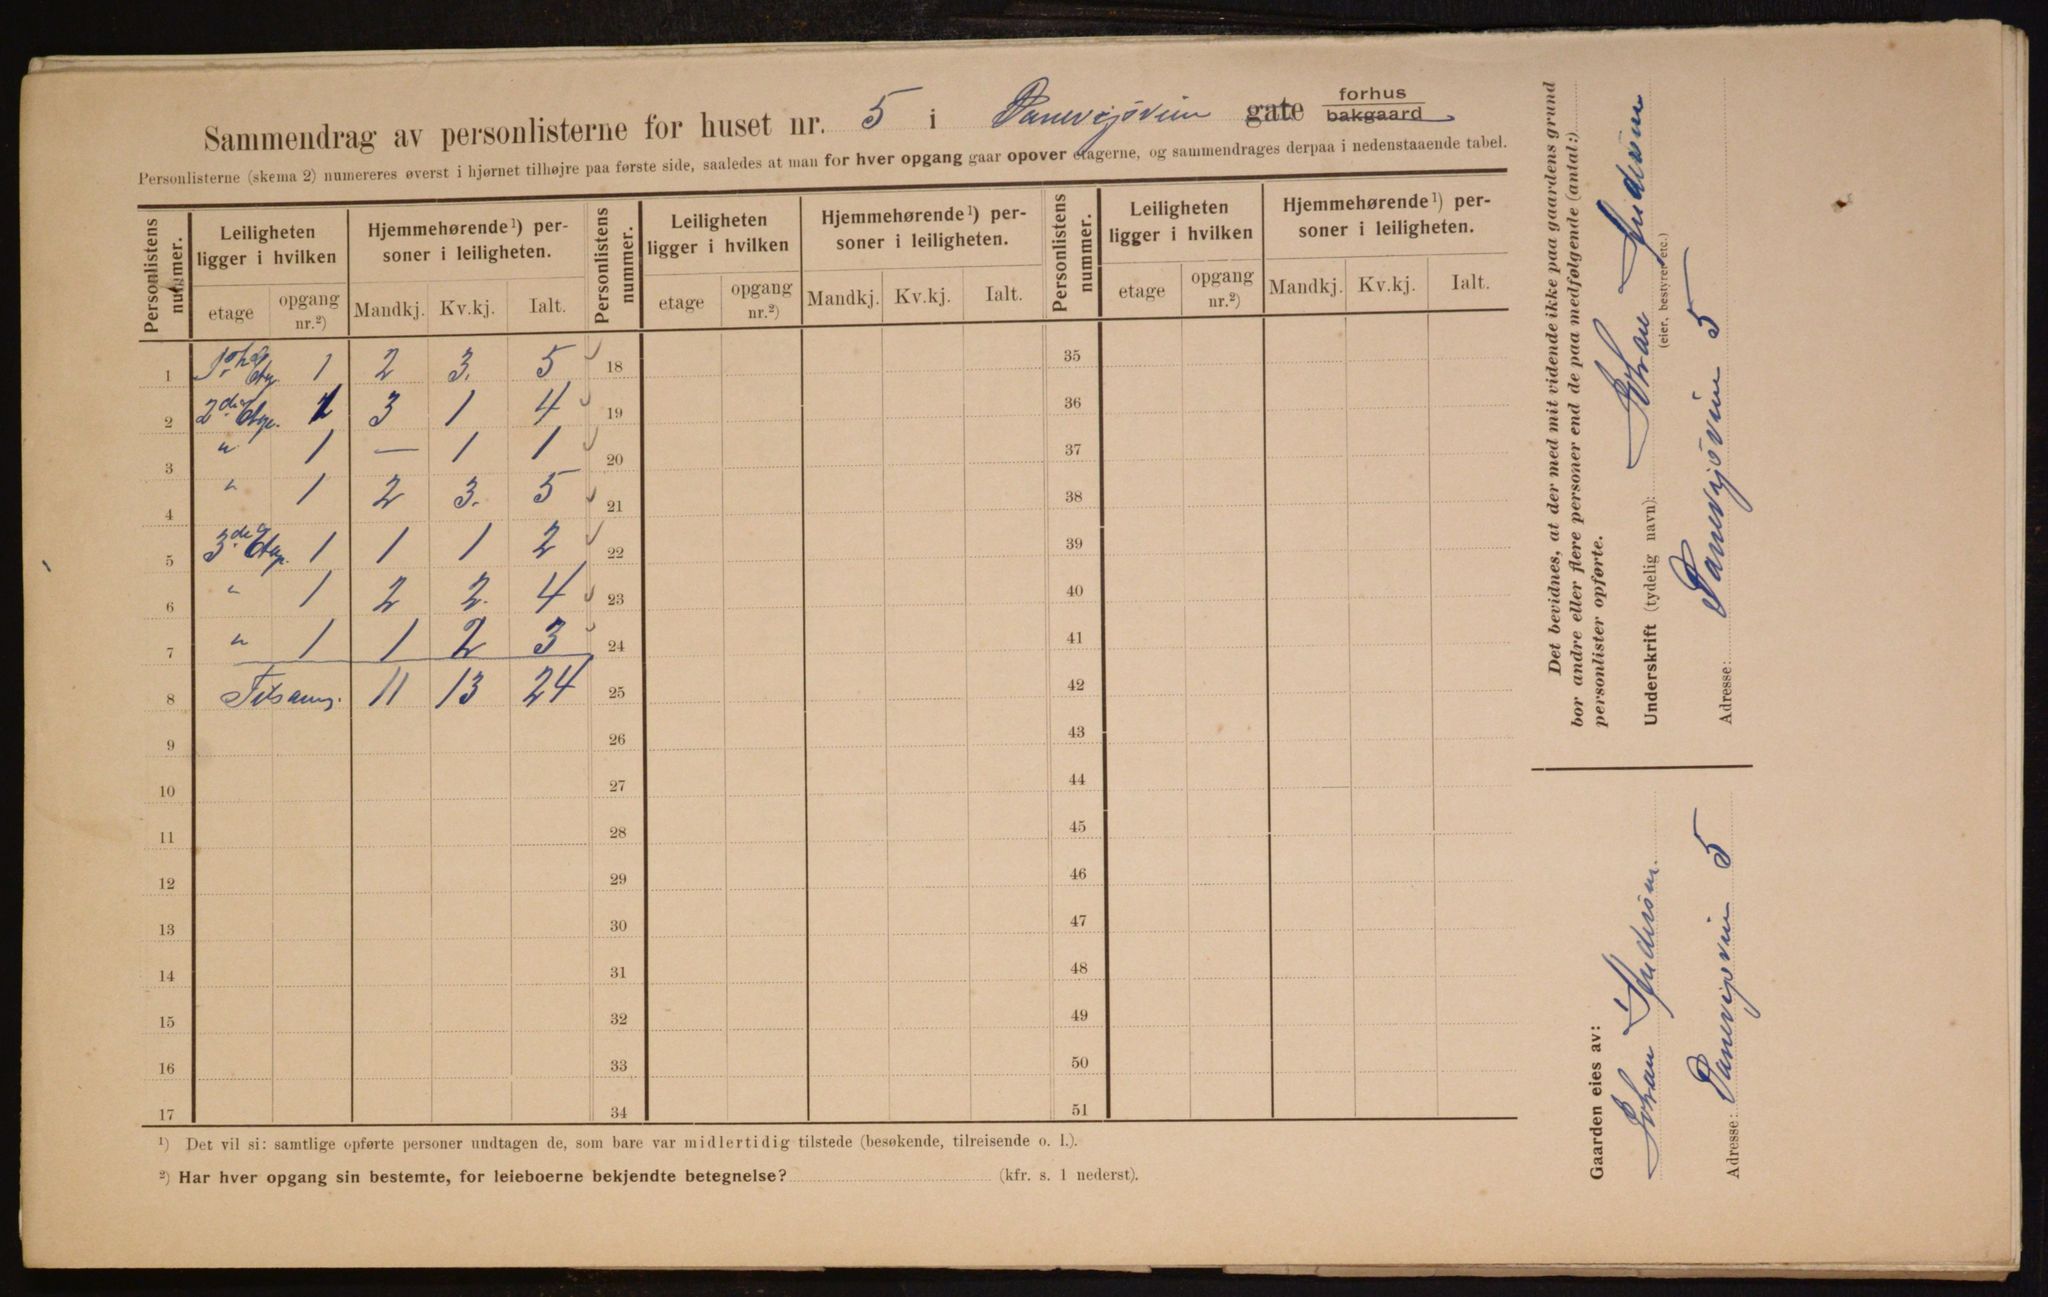 Sammendrag av personlisterne for huset nr. 5 i gate forhus bakgaard
Personlisterne (skema 2) numereres øverst i hjørnet tilhøjre paa første side, saaledes at man for hver opgang gaar opover etagerne, og sammendrages derpaa i nedenstaaende tabel.
Personlistens nummer. Leiligheten ligger i hvilken Hjemmehørende¹) personer i leiligheten. Personlistens nummer. Leiligheten ligger i hvilken Hjemmehørende¹) personer i leiligheten. Personlistens nummer. Leiligheten ligger i hvilken Hjemmehørende¹) personer i leiligheten.
etage opgang nr.²) Mandkj. Kv.kj. Ialt. etage opgang nr.²) Mandkj. Kv.kj. Ialt. etage opgang nr.²) Mandkj. Kv.kj. Ialt.
1 1 2 3. 5 18 35
2 2den Etage. 1 3 1 4 19 36
3 " 1 — 1 1 20 37
4 " 1 2 3. 5 21 38
5 3die Etage. 1 1 1 2 22 39
6 " 1 2 2. 4 23 40
7 " 1 1 2 3 24 41
8 Tilsam. 11 13 24 25 42
9 26 43
10 27 44
11 28 45
12 29 46
13 30 47
14 31 48
15 32 49
16 33 50
17 34 51
¹) Det vil si: samtlige opførte personer undtagen de, som bare var midlertidig tilstede (besøkende, tilreisende o. l.).
²) Har hver opgang sin bestemte, for leieboerne bekjendte betegnelse? (kfr. s. 1 nederst).
Det bevidnes, at der med mit vidende ikke paa gaardens grund
bor andre eller flere personer end de paa medfølgende (antal:)
personlister opførte.
Underskrift (tydelig navn): Johan Andersen
(eier, bestyrer etc.)
Adresse: 5
Gaarden eies av:
Johan Andersen.
Adresse: 5